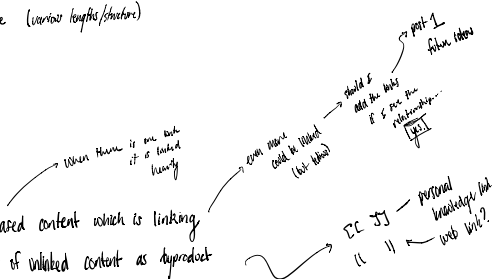 e (various lengths/structure)
post 1
future
should I
add the links
if I see the
relationship...
yes!
even more
could be linked
(but takes)
when there is one link
it is linked
heavily
ased content which is linking
of unlinked content as byproduct
[[ ]] — personal
knowledge link
(( )) ← web link?